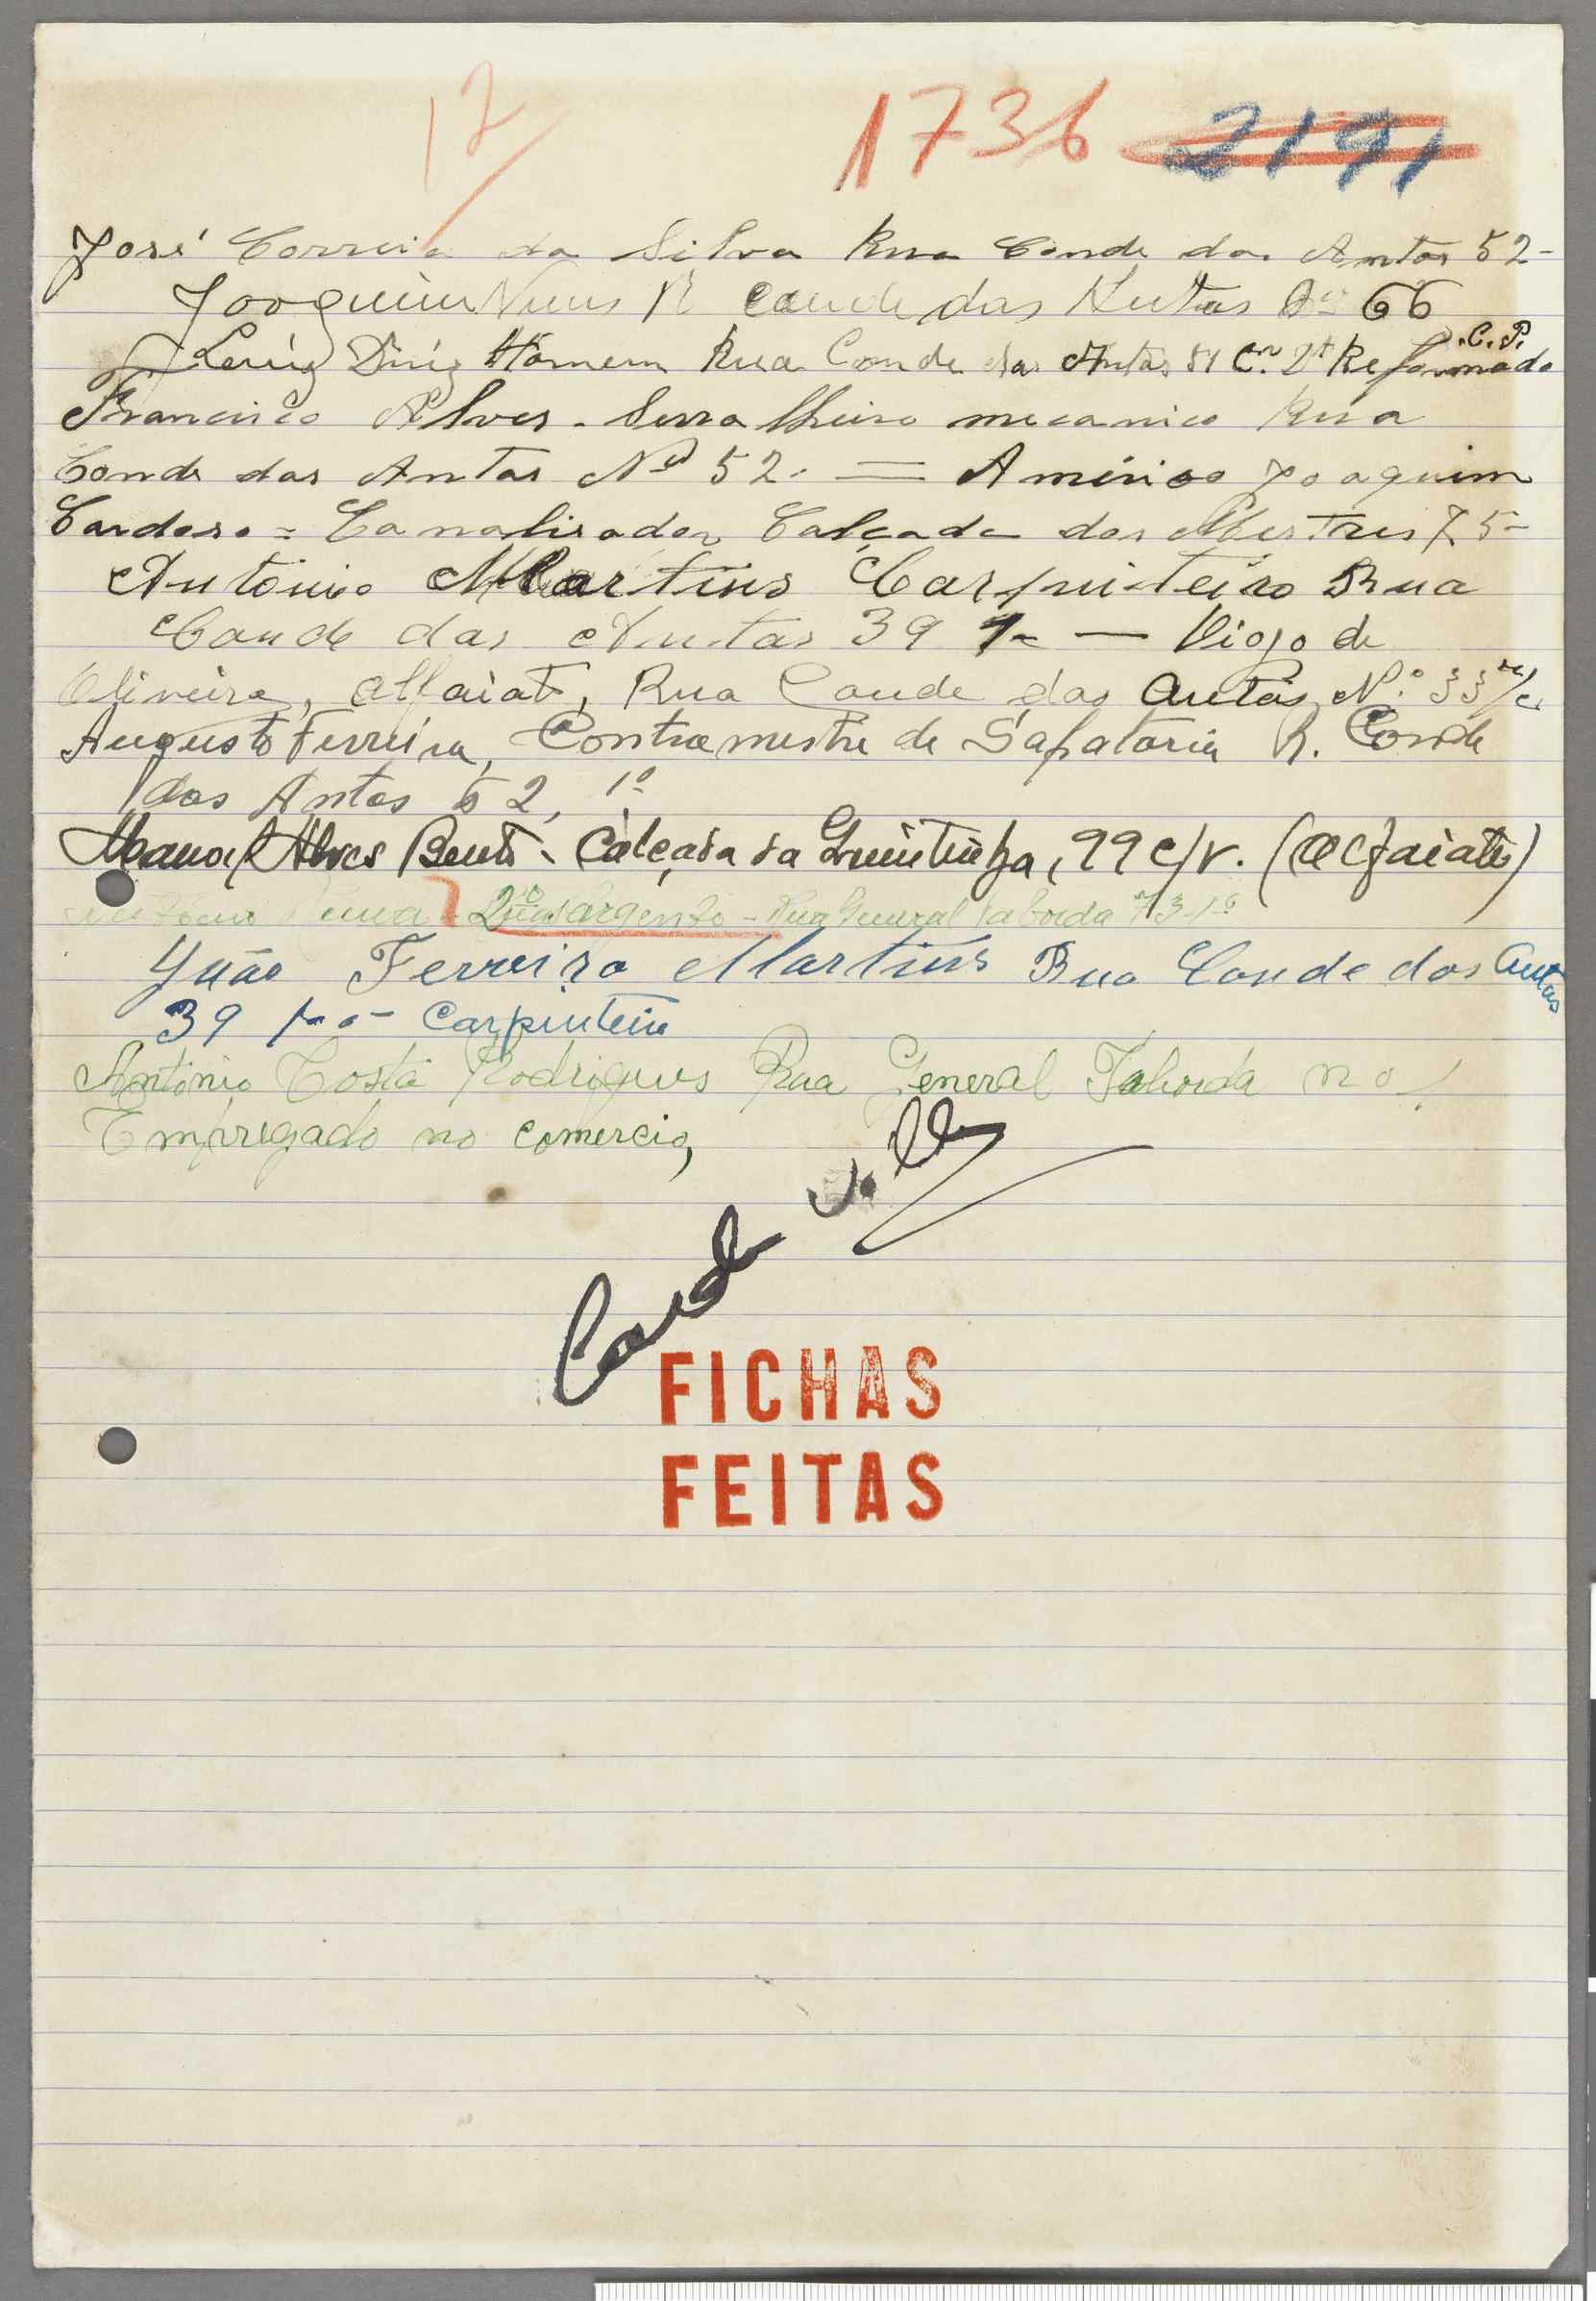 17
1736 2191
José Correia da Silva Rua Conde das Antas 52-
Joaquim Nunes R Conde das Antas Nº 66
Luíz Diniz Homem Rua Conde das Antas 51 C. Reformado C.P.
Francisco Alves - Serralheiro mecanico Rua
Conde das Antas Nº 52. = Américo Joaquim
Cardoso = Canalisador Calçada dos Mestres 75-
António Martins Carpinteiro Rua
Conde das Antas 39 — Diogo de
Oliveira, alfaiate, Rua Conde das Antas N.º 33 r/c
Augusto Ferreira, Contramestre de Sapataria R. Conde
das Antas 52, 1º
Manoel Alves Bento - Calçada da Quintinha, 99 c/v. (Alfaiate)
2º Sargento - Rua General Taborda 73-1º
João Ferreira Martins Rua Conde das Antas
39 Carpinteiro
António Costa Rodrigues Rua General Taborda nº 1
Empregado no comercio,
FICHAS
FEITAS